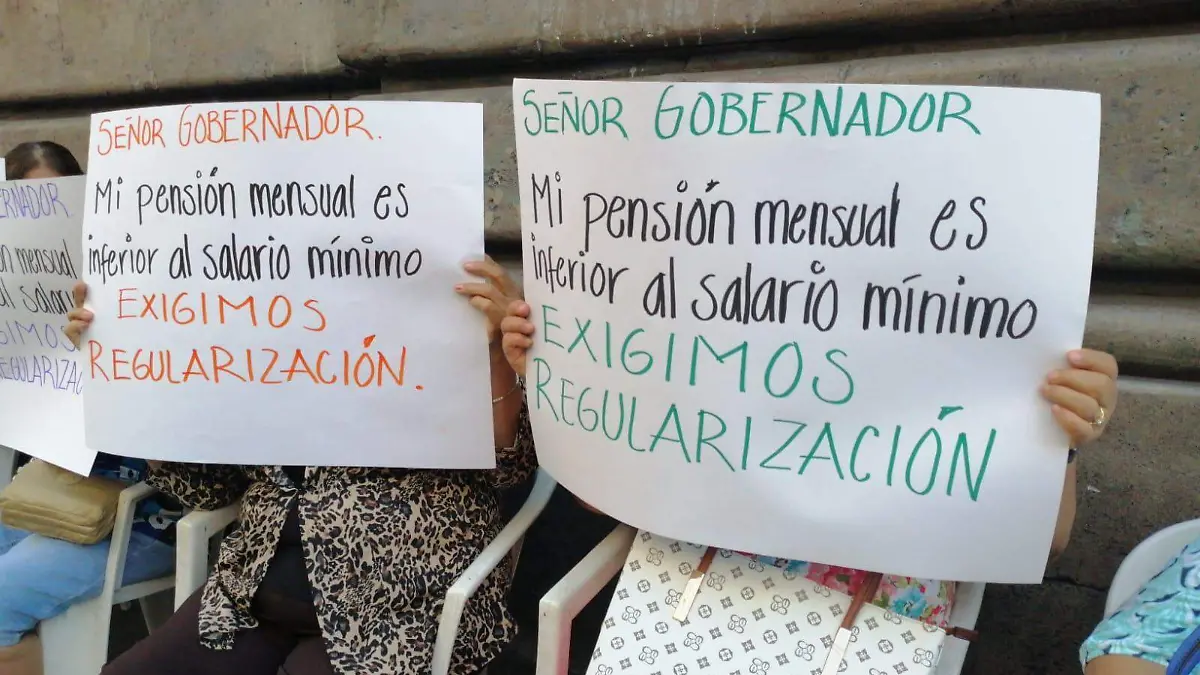 ERNADOR
n mensual
al salari
GIMOS
EGULARIZAC
SEÑOR GOBERNADOR.
Mi pensión mensual es
inferior al salario mínimo
EXIGIMOS
REGULARIZACIÓN.
SEÑOR GOBERNADOR
Mi pensión mensual es
inferior al salario mínimo
EXIGIMOS
REGULARIZACIÓN